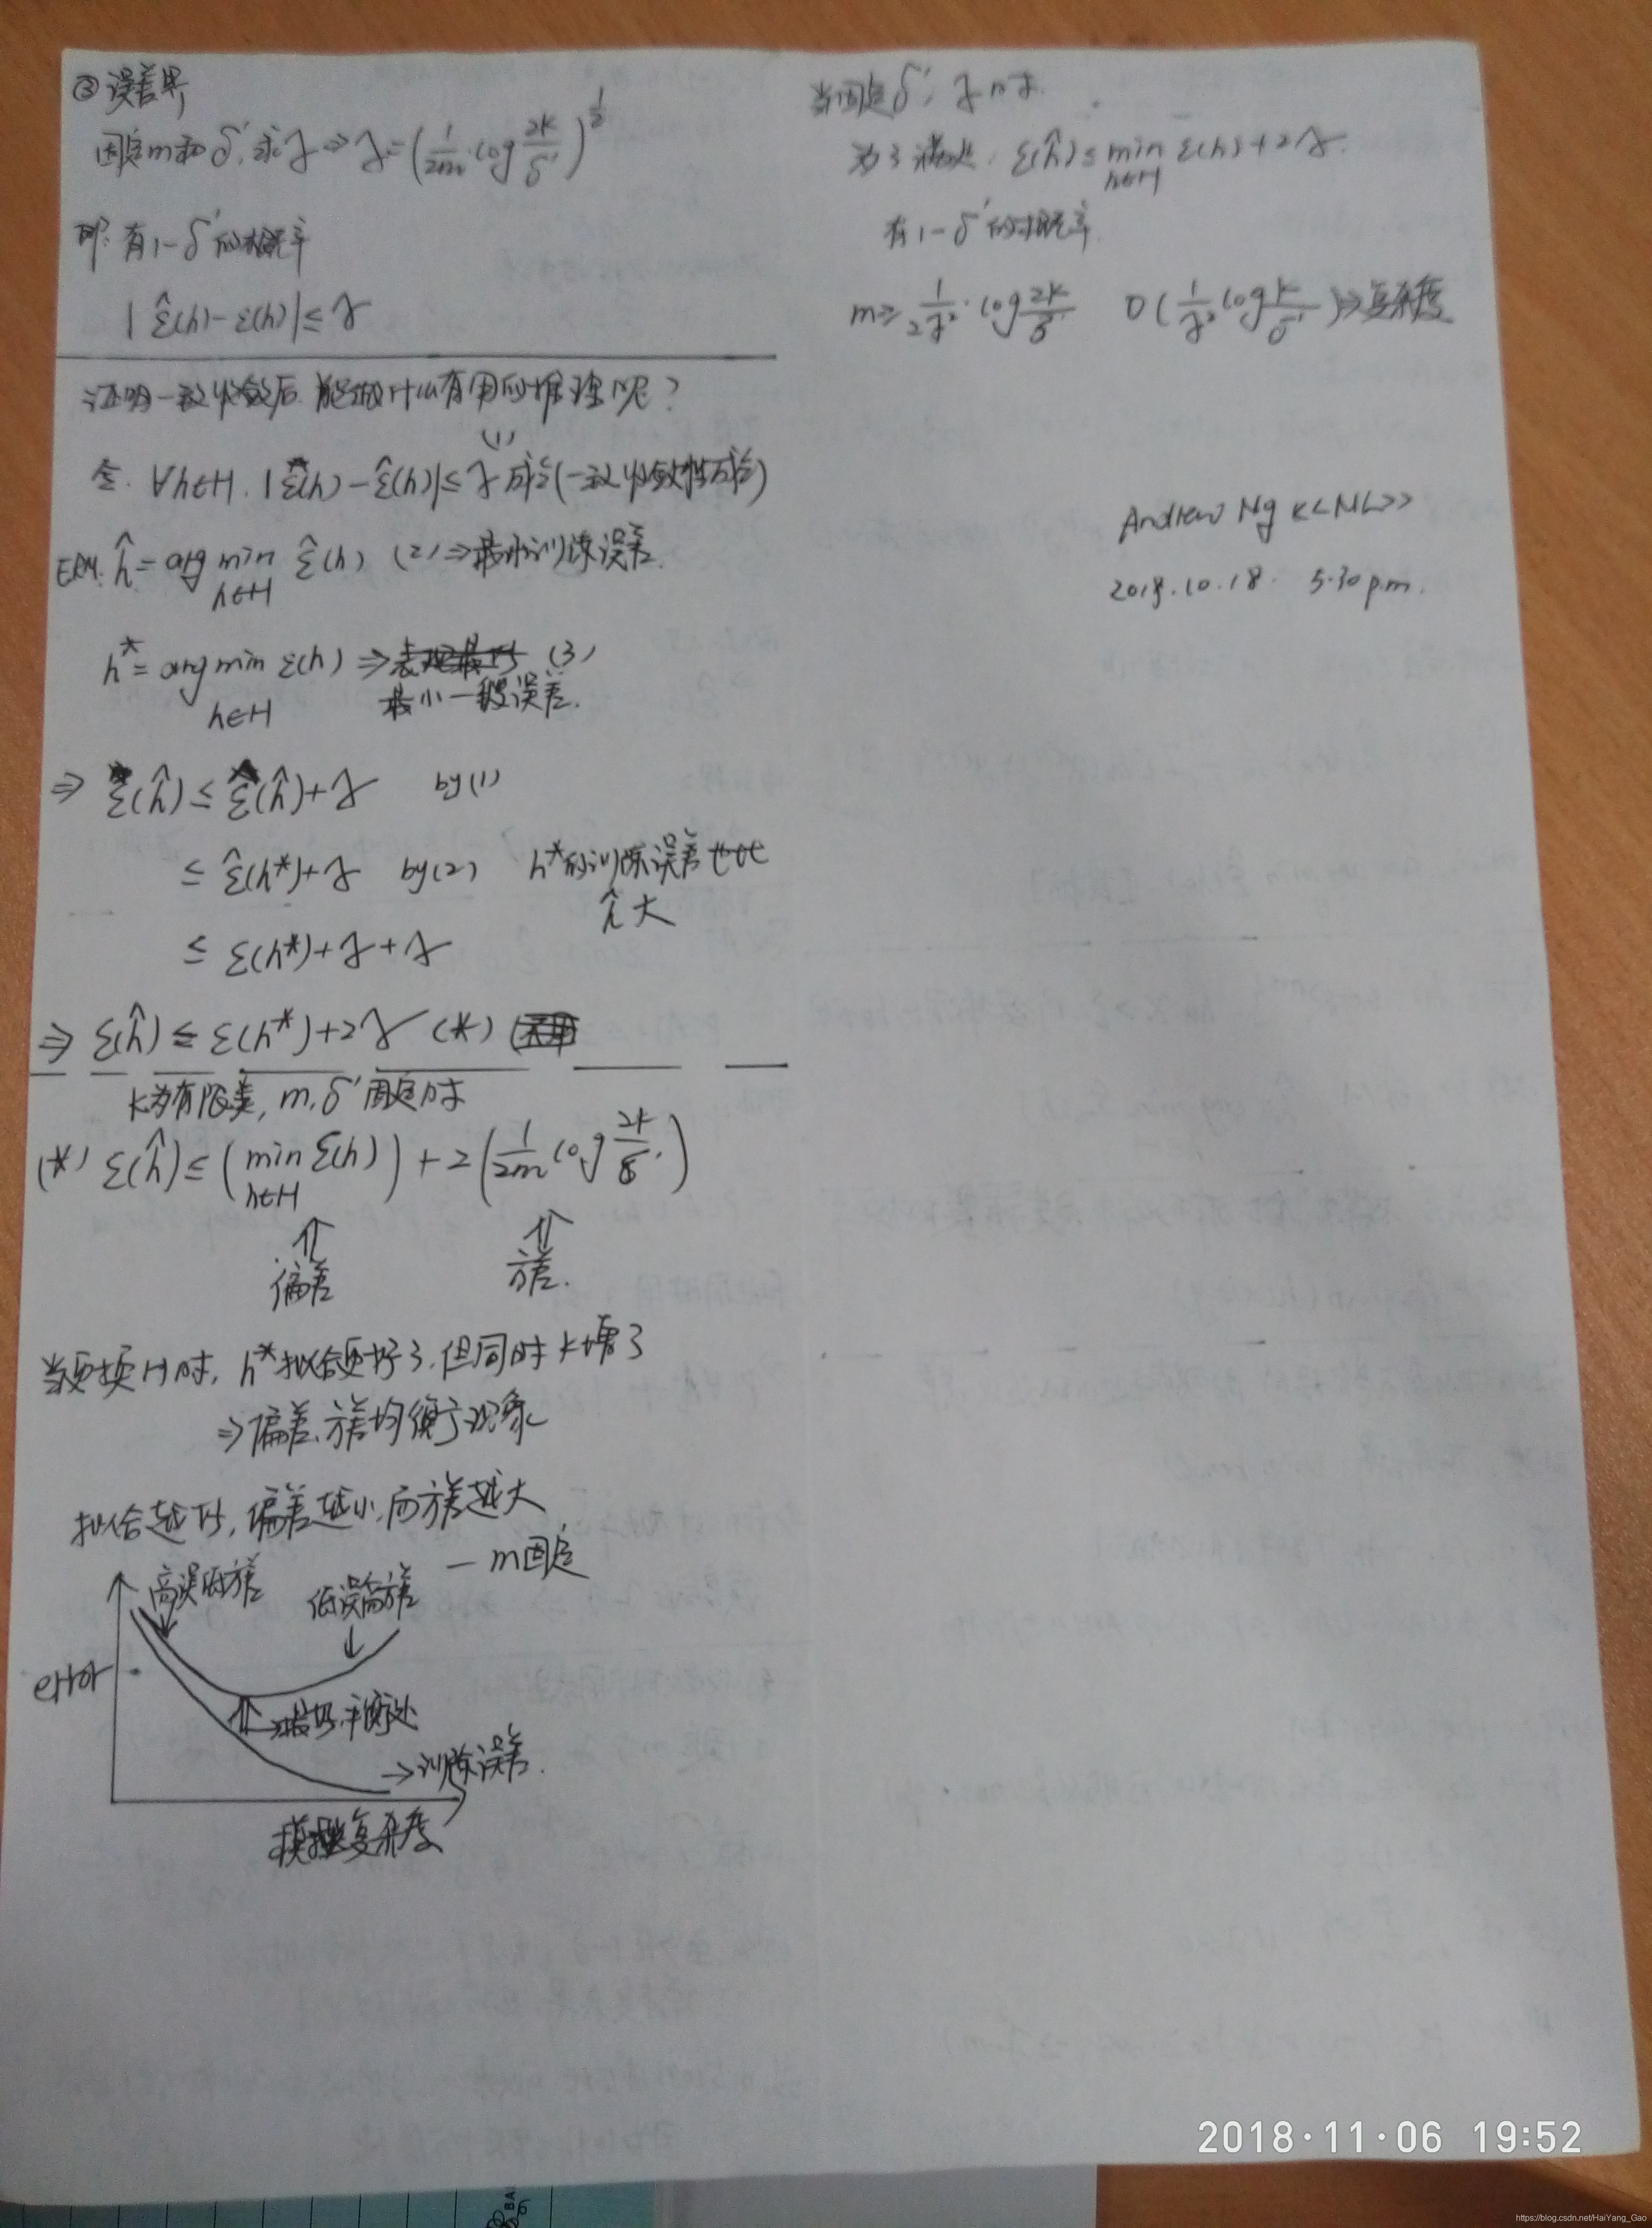 ③ 误差界
固定m和δ', 求γ ⇒ γ = (1/2m · log 2k/δ')^(1/2)
即: 有1-δ'的概率
| ε̂(h) - ε(h) | ≤ γ
证明一致收敛后, 能做什么有用的推理呢?
令. ∀h∈H. | ε(h) - ε̂(h) | ≤ γ 成立 (一致收敛性成立) (1)
ERM. ĥ = arg min ε̂(h) (2) ⇒ 最小训练误差.
h∈H
h* = arg min ε(h) ⇒ (3)
h∈H 最小一般误差.
⇒ ε(ĥ) ≤ ε̂(ĥ) + γ by (1)
≤ ε̂(h*) + γ by (2) h*的训练误差比
ĥ大
≤ ε(h*) + γ + γ
⇒ ε(ĥ) ≤ ε(h*) + 2γ (*)
k为有限类, m, δ' 固定时
(*) ε(ĥ) ≤ (min ε(h)) + 2 (1/2m log 2k/δ')
h∈H
⇑ ⇑
偏差 方差.
当更换H时, h*拟合更好了, 但同时k增了
⇒ 偏差、方差均衡现象
拟合越好, 偏差越小, 而方差越大
— m固定
高误低方差 低误高方差
error
最好, 平衡处
→ 训练误差.
模型复杂度
当固定δ', γ时.
为了满足: ε(ĥ) ≤ min ε(h) + 2γ.
h∈H
有1-δ'的概率.
m ≥ 1/2γ² · log 2k/δ' O(1/γ² log k/δ') ⇒ 复杂度
Andrew Ng <<ML>>
2018.10.18. 5:30 p.m.
2018·11·06 19:52
https://blog.csdn.net/HaiYang_Gao